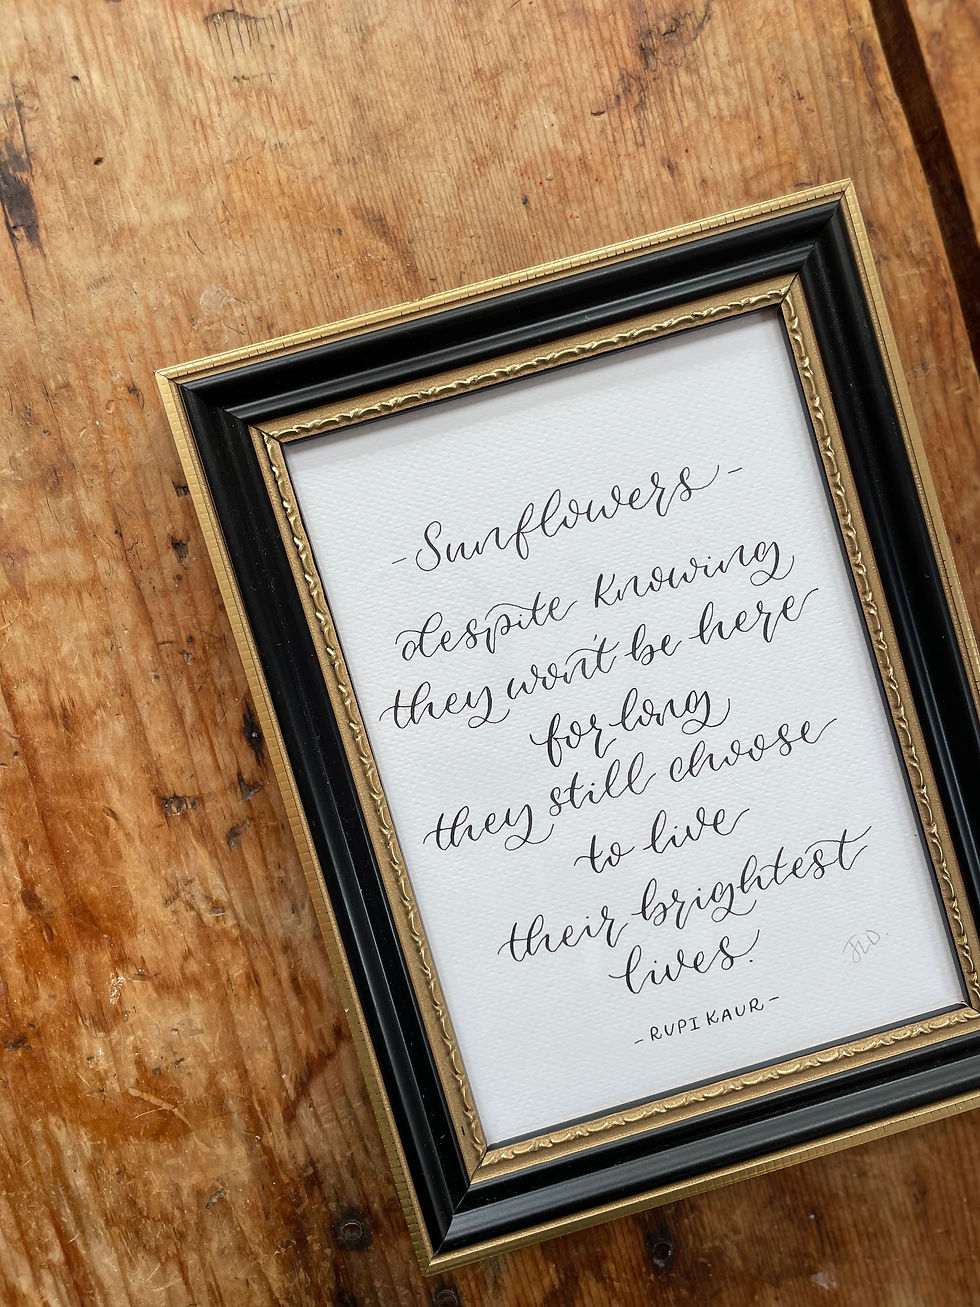 - Sunflowers -
despite knowing
they won't be here
for long
they still choose
to live
their brightest
lives.
JLD.
- RUPI KAUR -